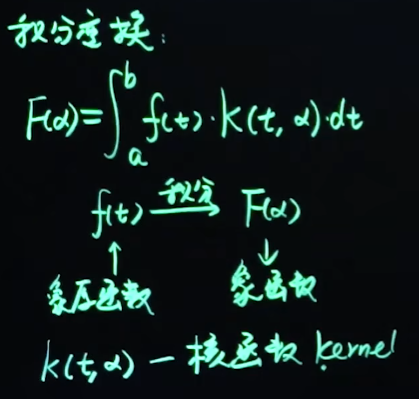 积分变换:
F(α)=∫_a^b f(t)·k(t,α)·dt
f(t) 积分→ F(α)
↑ ↓
象原函数 象函数
k(t,α) — 核函数 kernel